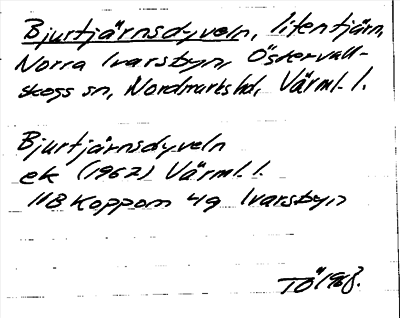 Bjurtjärnsdyveln, liten tjärn,
Norra Ivarsbyn, Östervall-
skogs sn, Nordmarks hd, Värml. l.
Bjurtjärnsdyveln
ek (1962) Värml. l.
11B Koppom 4g Ivarsbyn
TÖ 1968.